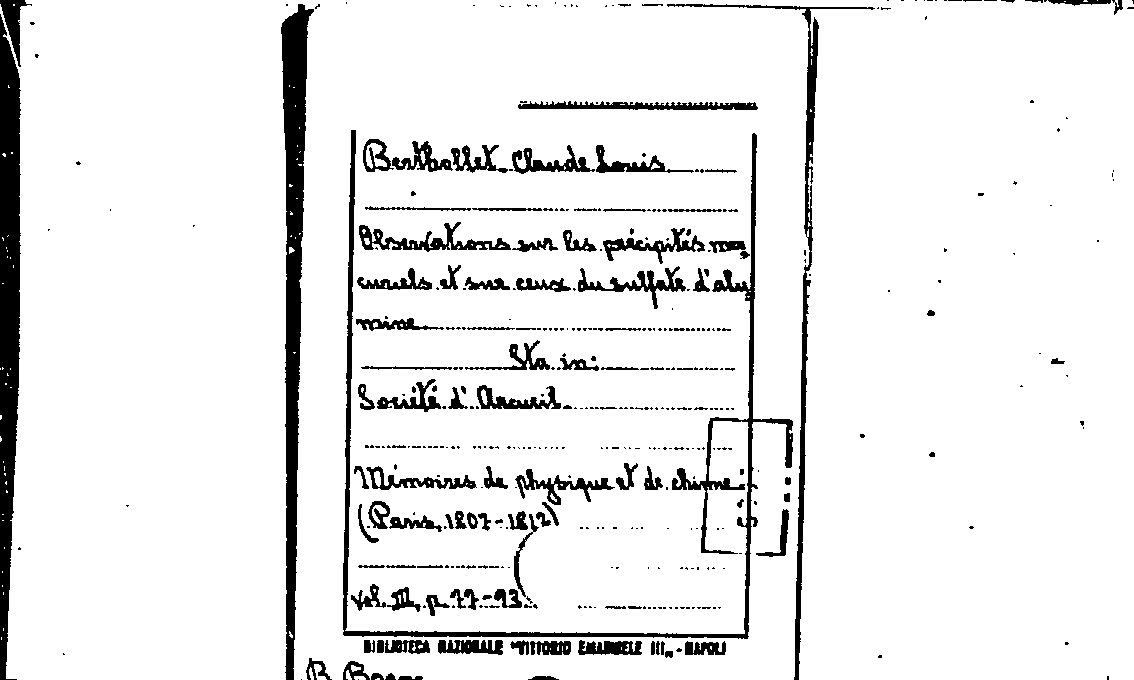 Berthollet Claude Louis
Observations sur les précipités mer=
curiels et sur ceux du sulfate d'alu=
mine
Sta in:
Société d'Arcueil.
Mémoires de physique et de chimie
(Paris, 1807-1812)
vol. III, p. 77-93
BIBLIOTECA NAZIONALE "VITTORIO EMANUELE III„ - NAPOLI
B.